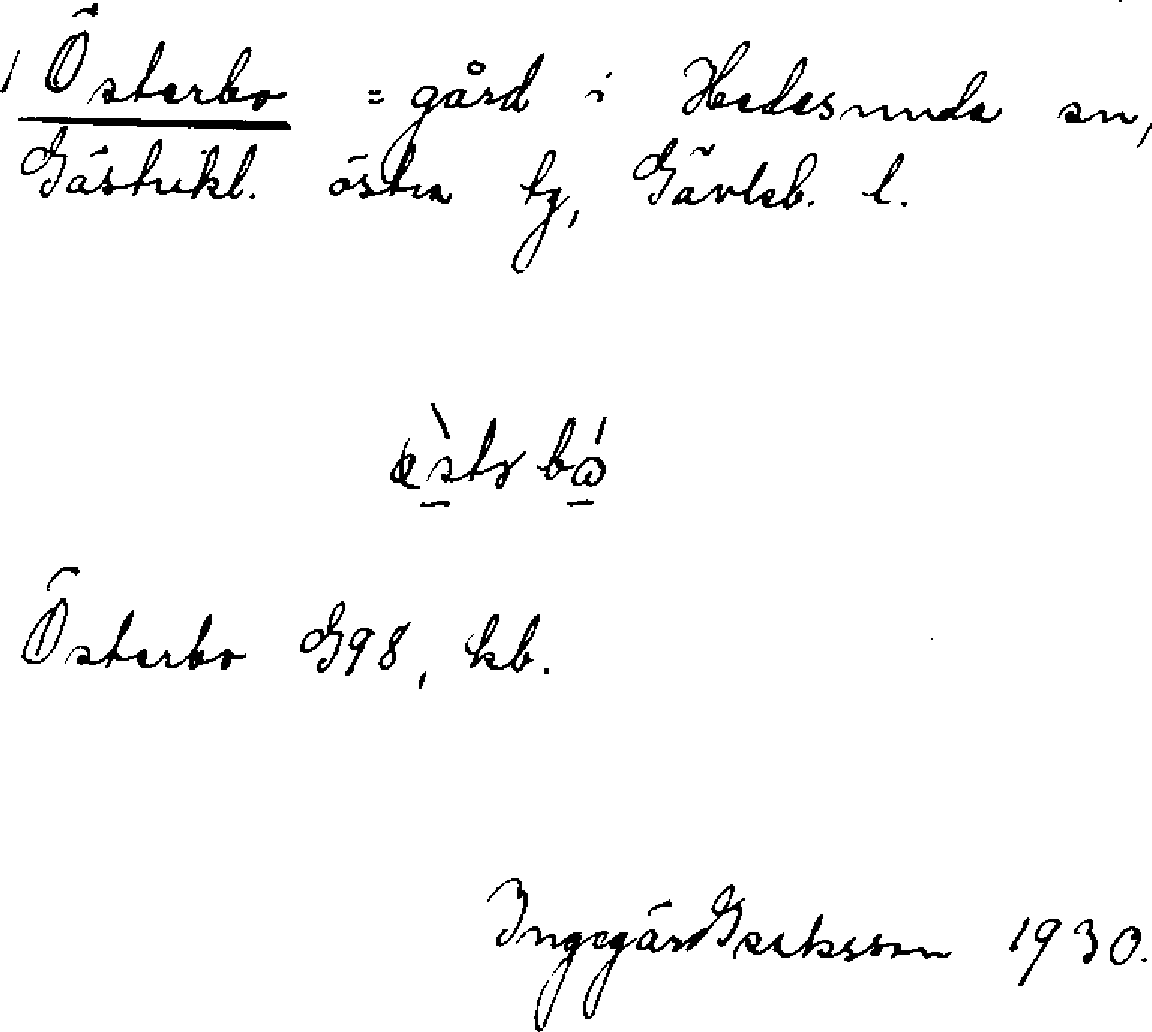 Österbo = gård i Hedesunda sn,
Gästrikl. östra tg, Gävleb. l.
Österbo G98, kb.
Ingegärd Isaksson 1930.